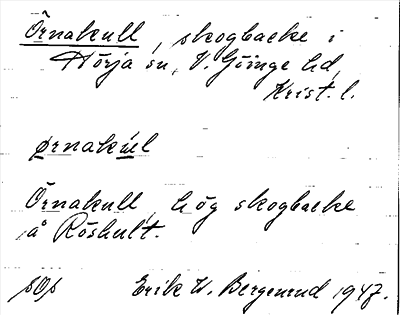 Örnakull, skogbacke i
Hörja sn, V. Göinge hd,
Krist. l.
ørnakúl
Örnakull, hög skogbacke
å Röshult.
sOs Erik W. Bergenrud 1947.